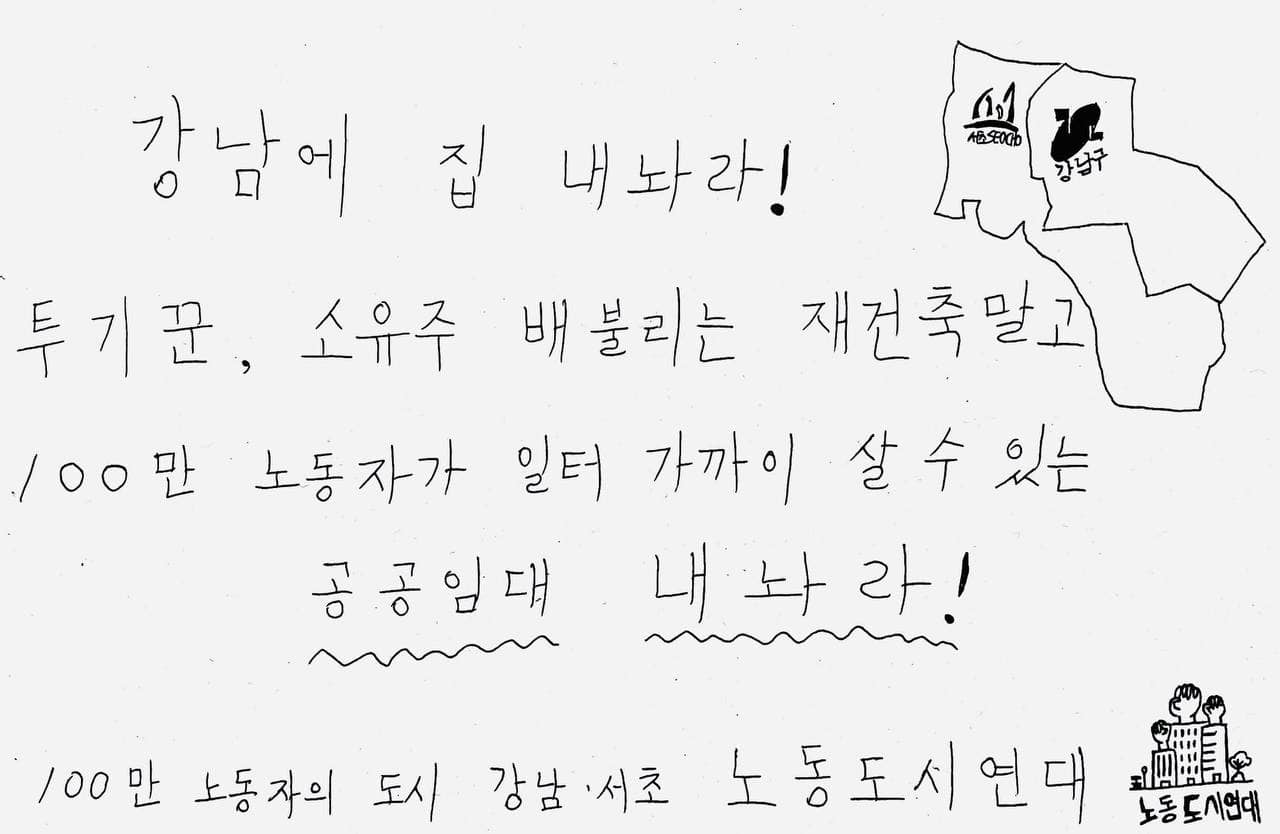 강남에 집 내놔라!
A좀SEOCHO
강남구
투기꾼, 소유주 배불리는 재건축말고
100만 노동자가 일터 가까이 살 수 있는
공공임대 내놔라!
100만 노동자의 도시 강남·서초 노동도시연대
노동도시연대